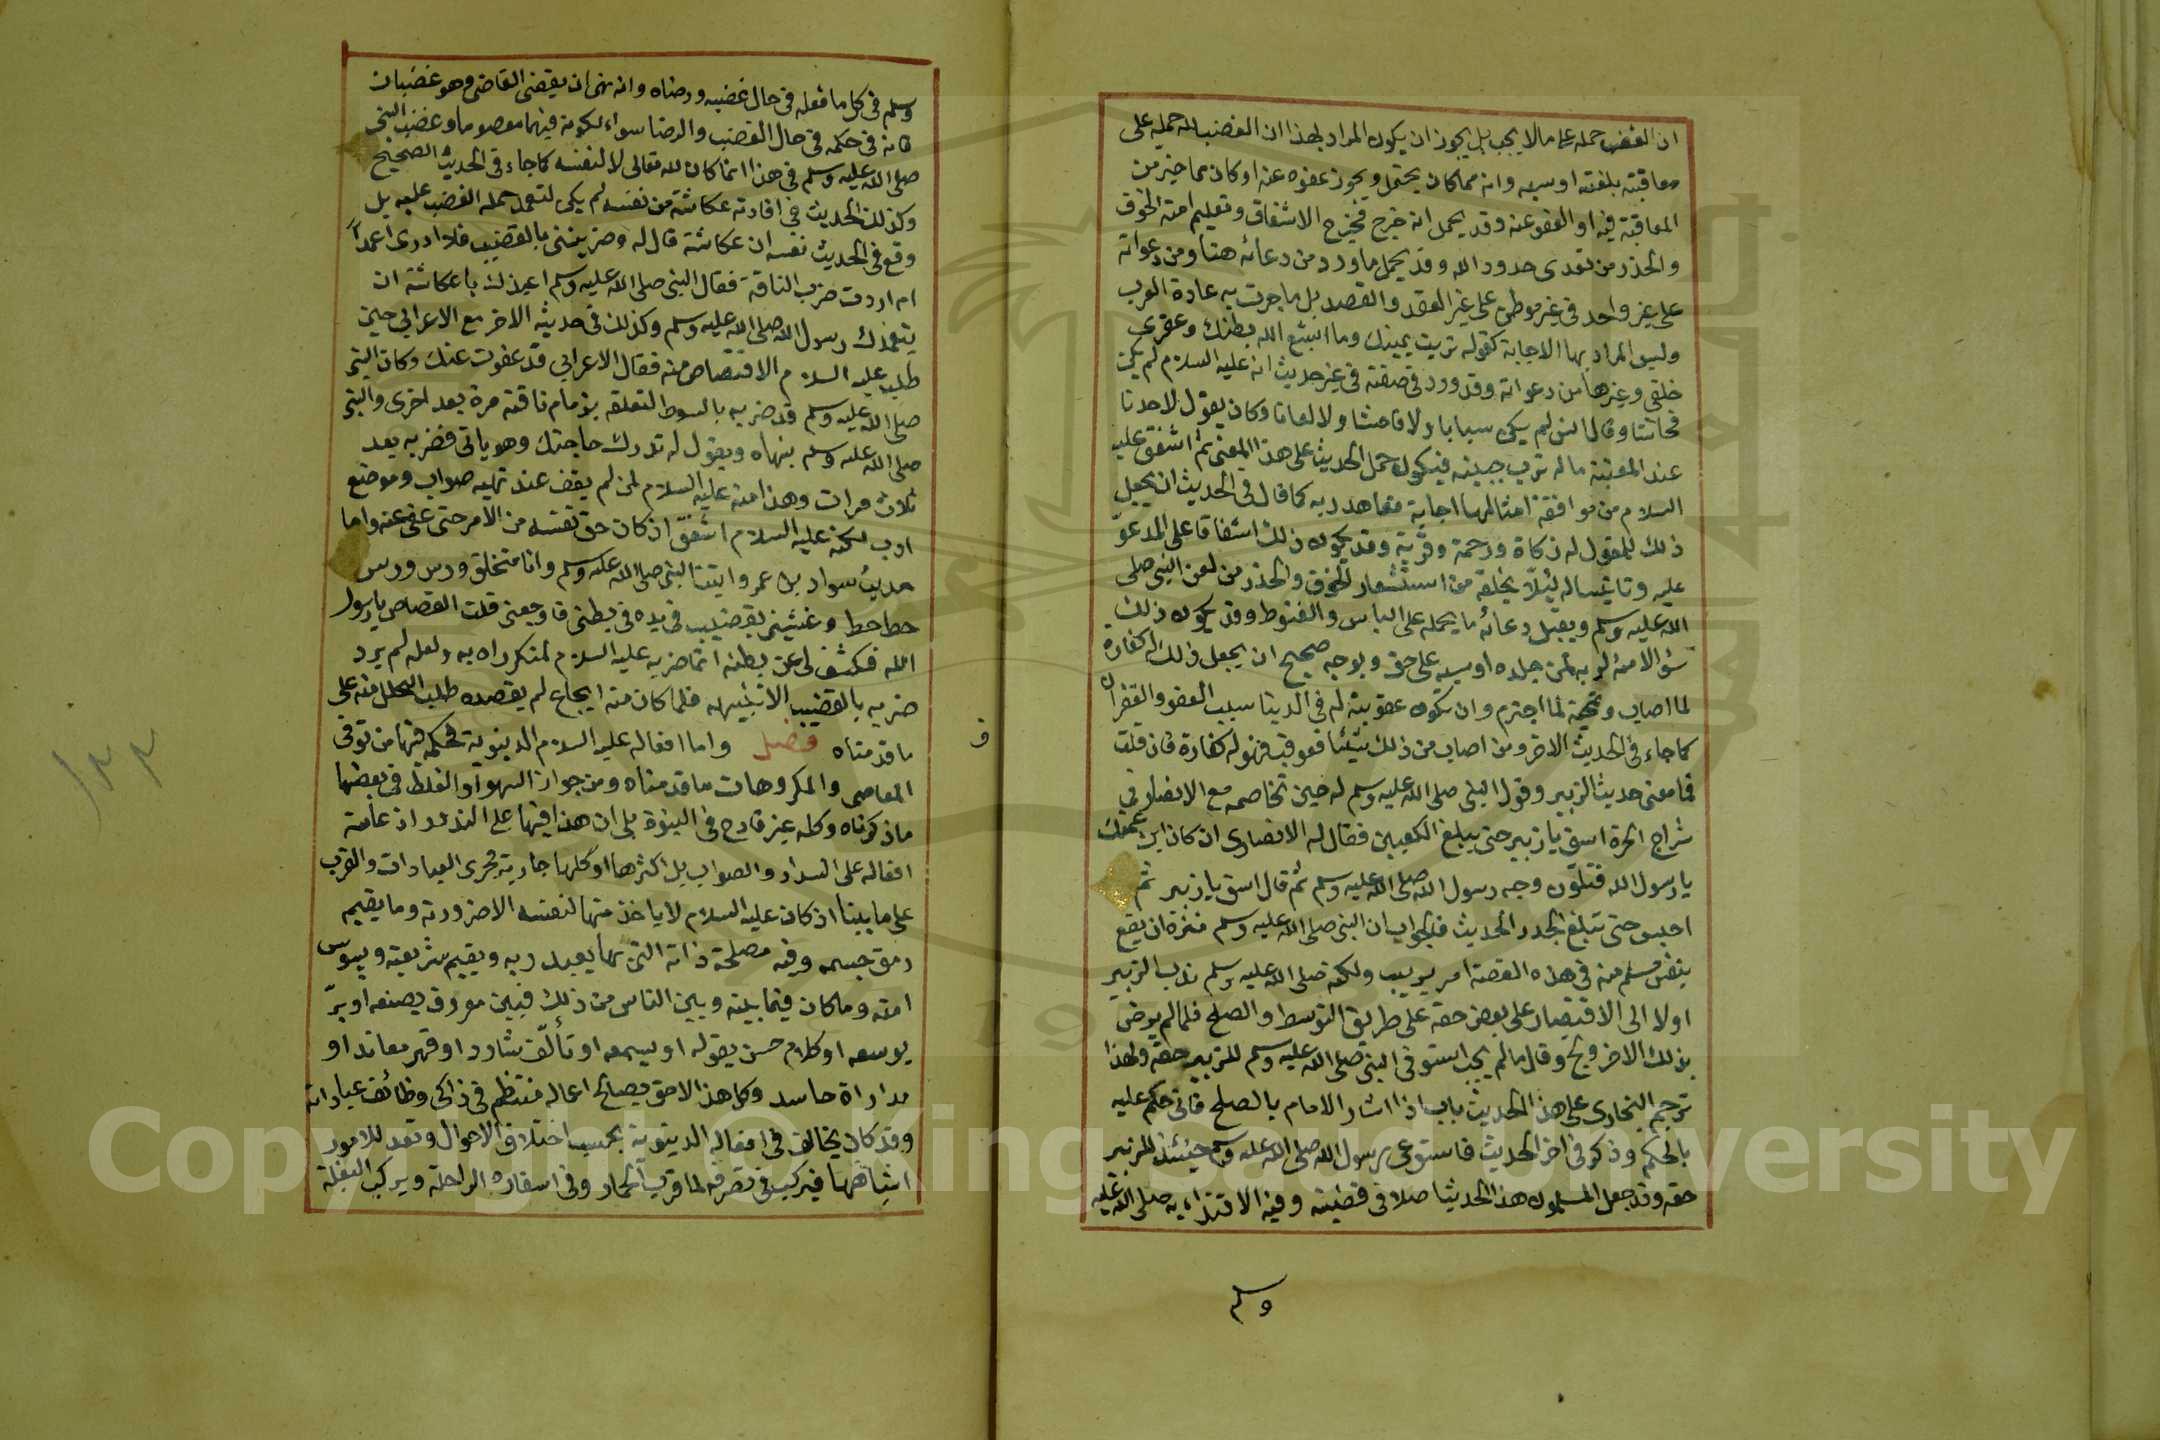 ان الغضب حمله على مالا يجب بل يجوز ان يكون المراد بهذا ان الغضب لله حمله على
معاقبته بلعنته او سبه وانه مما كان يحتمل ويجوز عفوه عنه او كان مما خير من
المعاقبة فيه او العفو عنه وقد يحمل انه خرج مخرج الاشفاق وتعليم امته الخوف
والحذر من تعدى حدود الله وقد يحمل ما ورد من دعائه هنا ومن دعواته
على غير واحد فى غير موطن على غير العقد والقصد بل ما جرت به عادة العرب
وليس المراد بها الاجابة كقوله تربت يمينك وما اشبع الله بطنك وعقرى
حلقى وغيرها من دعواته وقد ورد فى صفته فى غير حديث انه عليه السلام لم يكن
فحاشا وقال انس لم يكن سبابا ولا فاحشا ولا لعانا وكان يقول لاحدنا
عند المعتبة ما له ترب جبينه فيكون حمل الحديث على هذا المعنى ثم اشفق عليه
السلام من موافقة امثالها اجابة فعاهد ربه كما قال فى الحديث ان يجعل
ذلك للمقول له زكاة ورحمة وقربة وقد يكون ذلك اشفاقا على المدعو
عليه وتانيسا له ليلا يلحقه من استشعار الخوف والحذر من لعن النبى صلى
الله عليه وسلم ويقبل دعائه ما يحمله على الياس والقنوط وقد يكون ذلك
سؤالا منه لربه لمن جلده او سبه على حق وبوجه صحيح ان يجعل ذلك له كفارة
لما اصاب وتمحية لما اجترم وان تكون عقوبته له فى الدنيا سبب العفو والغفران
كما جاء فى الحديث الاخر ومن اصاب من ذلك شيئا فعوقب فهو له كفارة فان قلت
فما معنى حديث الزبير وقول النبى صلى الله عليه وسلم له حين تخاصمه مع الانصارى فى
شراج الحرة اسق يا زبير حتى يبلغ الكعبين فقال له الانصارى ان كان ابن عمتك
يا رسول الله فتلون وجه رسول الله صلى الله عليه وسلم ثم قال اسق يا زبير ثم
احبس حتى تبلغ الجدر الحديث فالجواب ان النبى صلى الله عليه وسلم منزه ان يقع
بنفس مسلم منه فى هذه القصة امر يريب ولكنه صلى الله عليه وسلم ندب الزبير
اولا الى الاقتصار على بعض حقه على طريق التوسط والصلح فلما لم يرض
بذلك الاخر ولج وقال ما لم يجب استوفى النبى صلى الله عليه وسلم للزبير حقه ولهذا
ترجم البخارى على هذا الحديث باب اذا اشار الامام بالصلح فابى حكم عليه
بالحكم وذكر فى اخر الحديث فاستوعى رسول الله صلى الله عليه وسلم حينئذ للزبير
حقه وقد جعل المسلمون هذا الحديث اصلا فى قضيته وفيه الاقتداء به صلى الله عليه
وسلم
وسلم فى كل ما فعله فى حال غضبه ورضاه وانه نهى ان يقضى القاضى وهو غضبان
فانه فى حكمه فى حال الغضب والرضا سواء لكونه فيهما معصوما وغضب النبى
صلى الله عليه وسلم فى هذا انما كان لله تعالى لا لنفسه كما جاء فى الحديث الصحيح
وكذلك الحديث فى اقادته عكاشة من نفسه لم يكن لتعمد حمله الغضب عليه بل
وقع فى الحديث نفسه ان عكاشة قال له وضربتنى بالقضيب فلا ادرى اعمدا
ام اردت ضرب الناقة فقال النبى صلى الله عليه وسلم اعيذك يا عكاشة ان
يتعمدك رسول الله صلى الله عليه وسلم وكذلك فى حديثه الاخر مع الاعرابى حين
طلب عليه السلام الاقتصاص منه فقال الاعرابى قد عفوت عنك وكان النبى
صلى الله عليه وسلم قد ضربه بالسوط لتعلقه بزمام ناقته مرة بعد اخرى والنبى
صلى الله عليه وسلم ينهاه ويقول له تدرك حاجتك وهو يابى فضربه بعد
ثلاث مرات وهذا منه عليه السلام لمن لم يقف عند نهيه صواب وموضع
ادب لكنه عليه السلام اشفق اذ كان حق نفسه من الامر حتى عفى عنه واما
حديث سواد بن عمرو اتيت النبى صلى الله عليه وسلم وانا متخلق ورس ورس
حط حط وغشينى بقضيب فى يده فى بطنى فاوجعنى قلت القصاص يا رسول
الله فكشف لى عن بطنه انما ضربه عليه السلام لمنكر راه به ولعله لم يرد
ضربه بالقضيب الا تنبيهه فلما كان منه ايجاع لم يقصده طلب التحلل منه على
ما قدمناه فصل واما افعاله عليه السلام الدنيوية فحكمه فيها من توقى
المعاصى والمكروهات ما قدمناه ومن جواز السهو او الغلط فى بعضها
ما ذكرناه وكله غير قادح فى النبوة بل ان هذا فيها على الندور اذ عامة
افعاله على السداد والصواب بل اكثرها او كلها جارية مجرى العبادات والقرب
على ما بينا اذ كان عليه السلام لا ياخذ منها لنفسه الا ضرورته وما يقيم
رمق جسمه وفيه مصلحة ذاته التى بها يعبد ربه ويقيم شريعته ويسوس
امته وما كان فيما بينه وبين الناس من ذلك فبين معروف يصنعه او بر
يوسعه او كلام حسن يقوله او يسمعه او تألف شارد او قهر معاند او
مداراة حاسد وكل هذا لاحق بصالح اعماله منتظم فى زاكى وظائف عباداته
وقد كان يخالف فى افعاله الدنيوية بحسب اختلاف الاحوال وتعد للامور
اشباهها فيركب فى تصرفه لما قرب الحمار وفى اسفاره الراحلة ويركب البغلة
Copyright © King Saud University